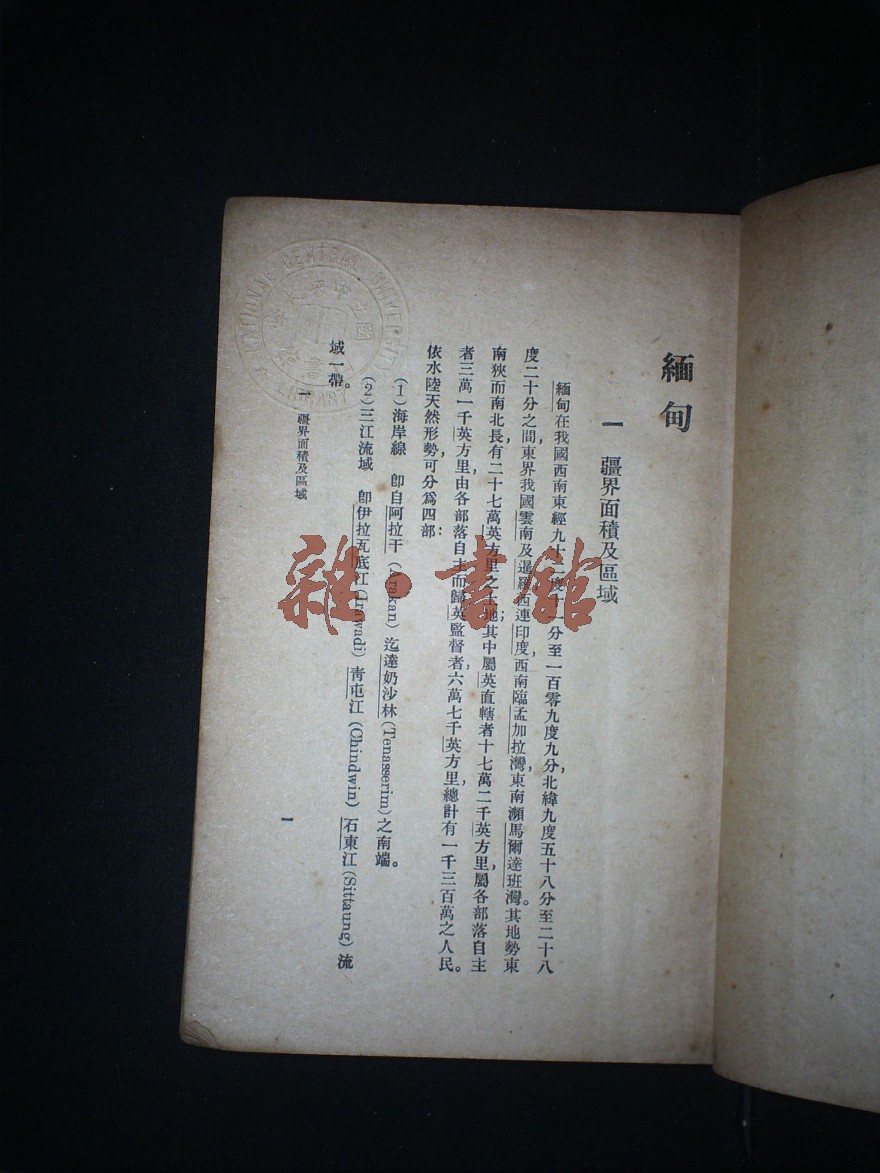 緬甸
一　疆界面積及區域
緬甸在我國西南東經九十
分至一百零九度九分，北緯九度五十八分至二十八
度二十分之間，東界我國雲南及暹羅，西連印度，西南臨孟加拉灣，東南瀕馬爾達班灣。其地勢東
南狹而南北長，有二十七萬英方里之土地；其中屬英直轄者十七萬二千英方里，屬各部落自主
者三萬一千英方里，由各部落自主而歸英監督者六萬七千英方里，總計有一千三百萬之人民。
依水陸天然形勢，可分為四部：
（1）海岸線　卽自阿拉干（Arakan）迄達奶沙林（Tenasserim）之南端。
（2）三江流域　卽伊拉瓦底江（Irawadi）靑屯江（Chindwin）石東江（Sittaung）流
域一帶。
一　疆界面積及區域
一
NATIONAL CENTRAL UNIVERSITY
LIBRARY
國立中央大學
雜·書館